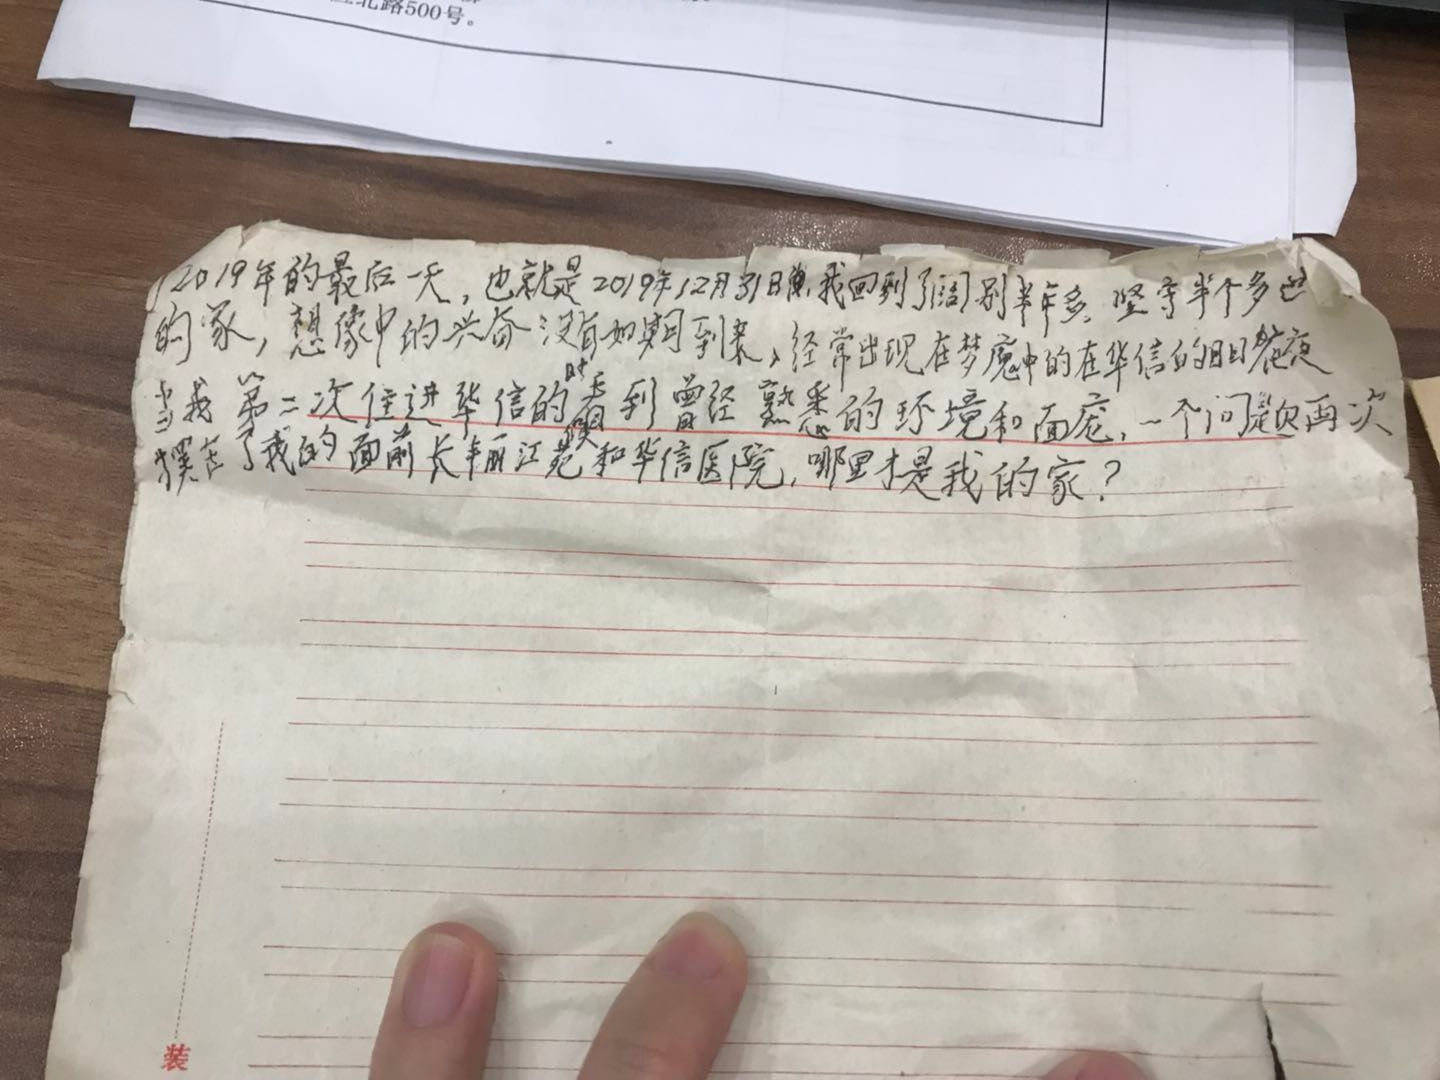 北路500号。
2019年的最后一天,也就是2019年12月31日,我回到了阔别半年多、坚守半个多世
的家,想像中的兴奋没有如期到来,经常出现在梦魇中的在华信的日日夜夜
当我第二次住进华信的时候看到曾经熟悉的环境和面庞,一个问题再次
摆在了我的面前长丰丽江苑和华信医院,哪里才是我的家?
装